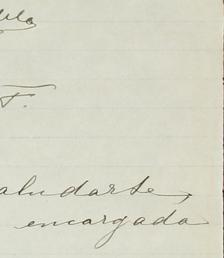 F.
aludarte,
encargada